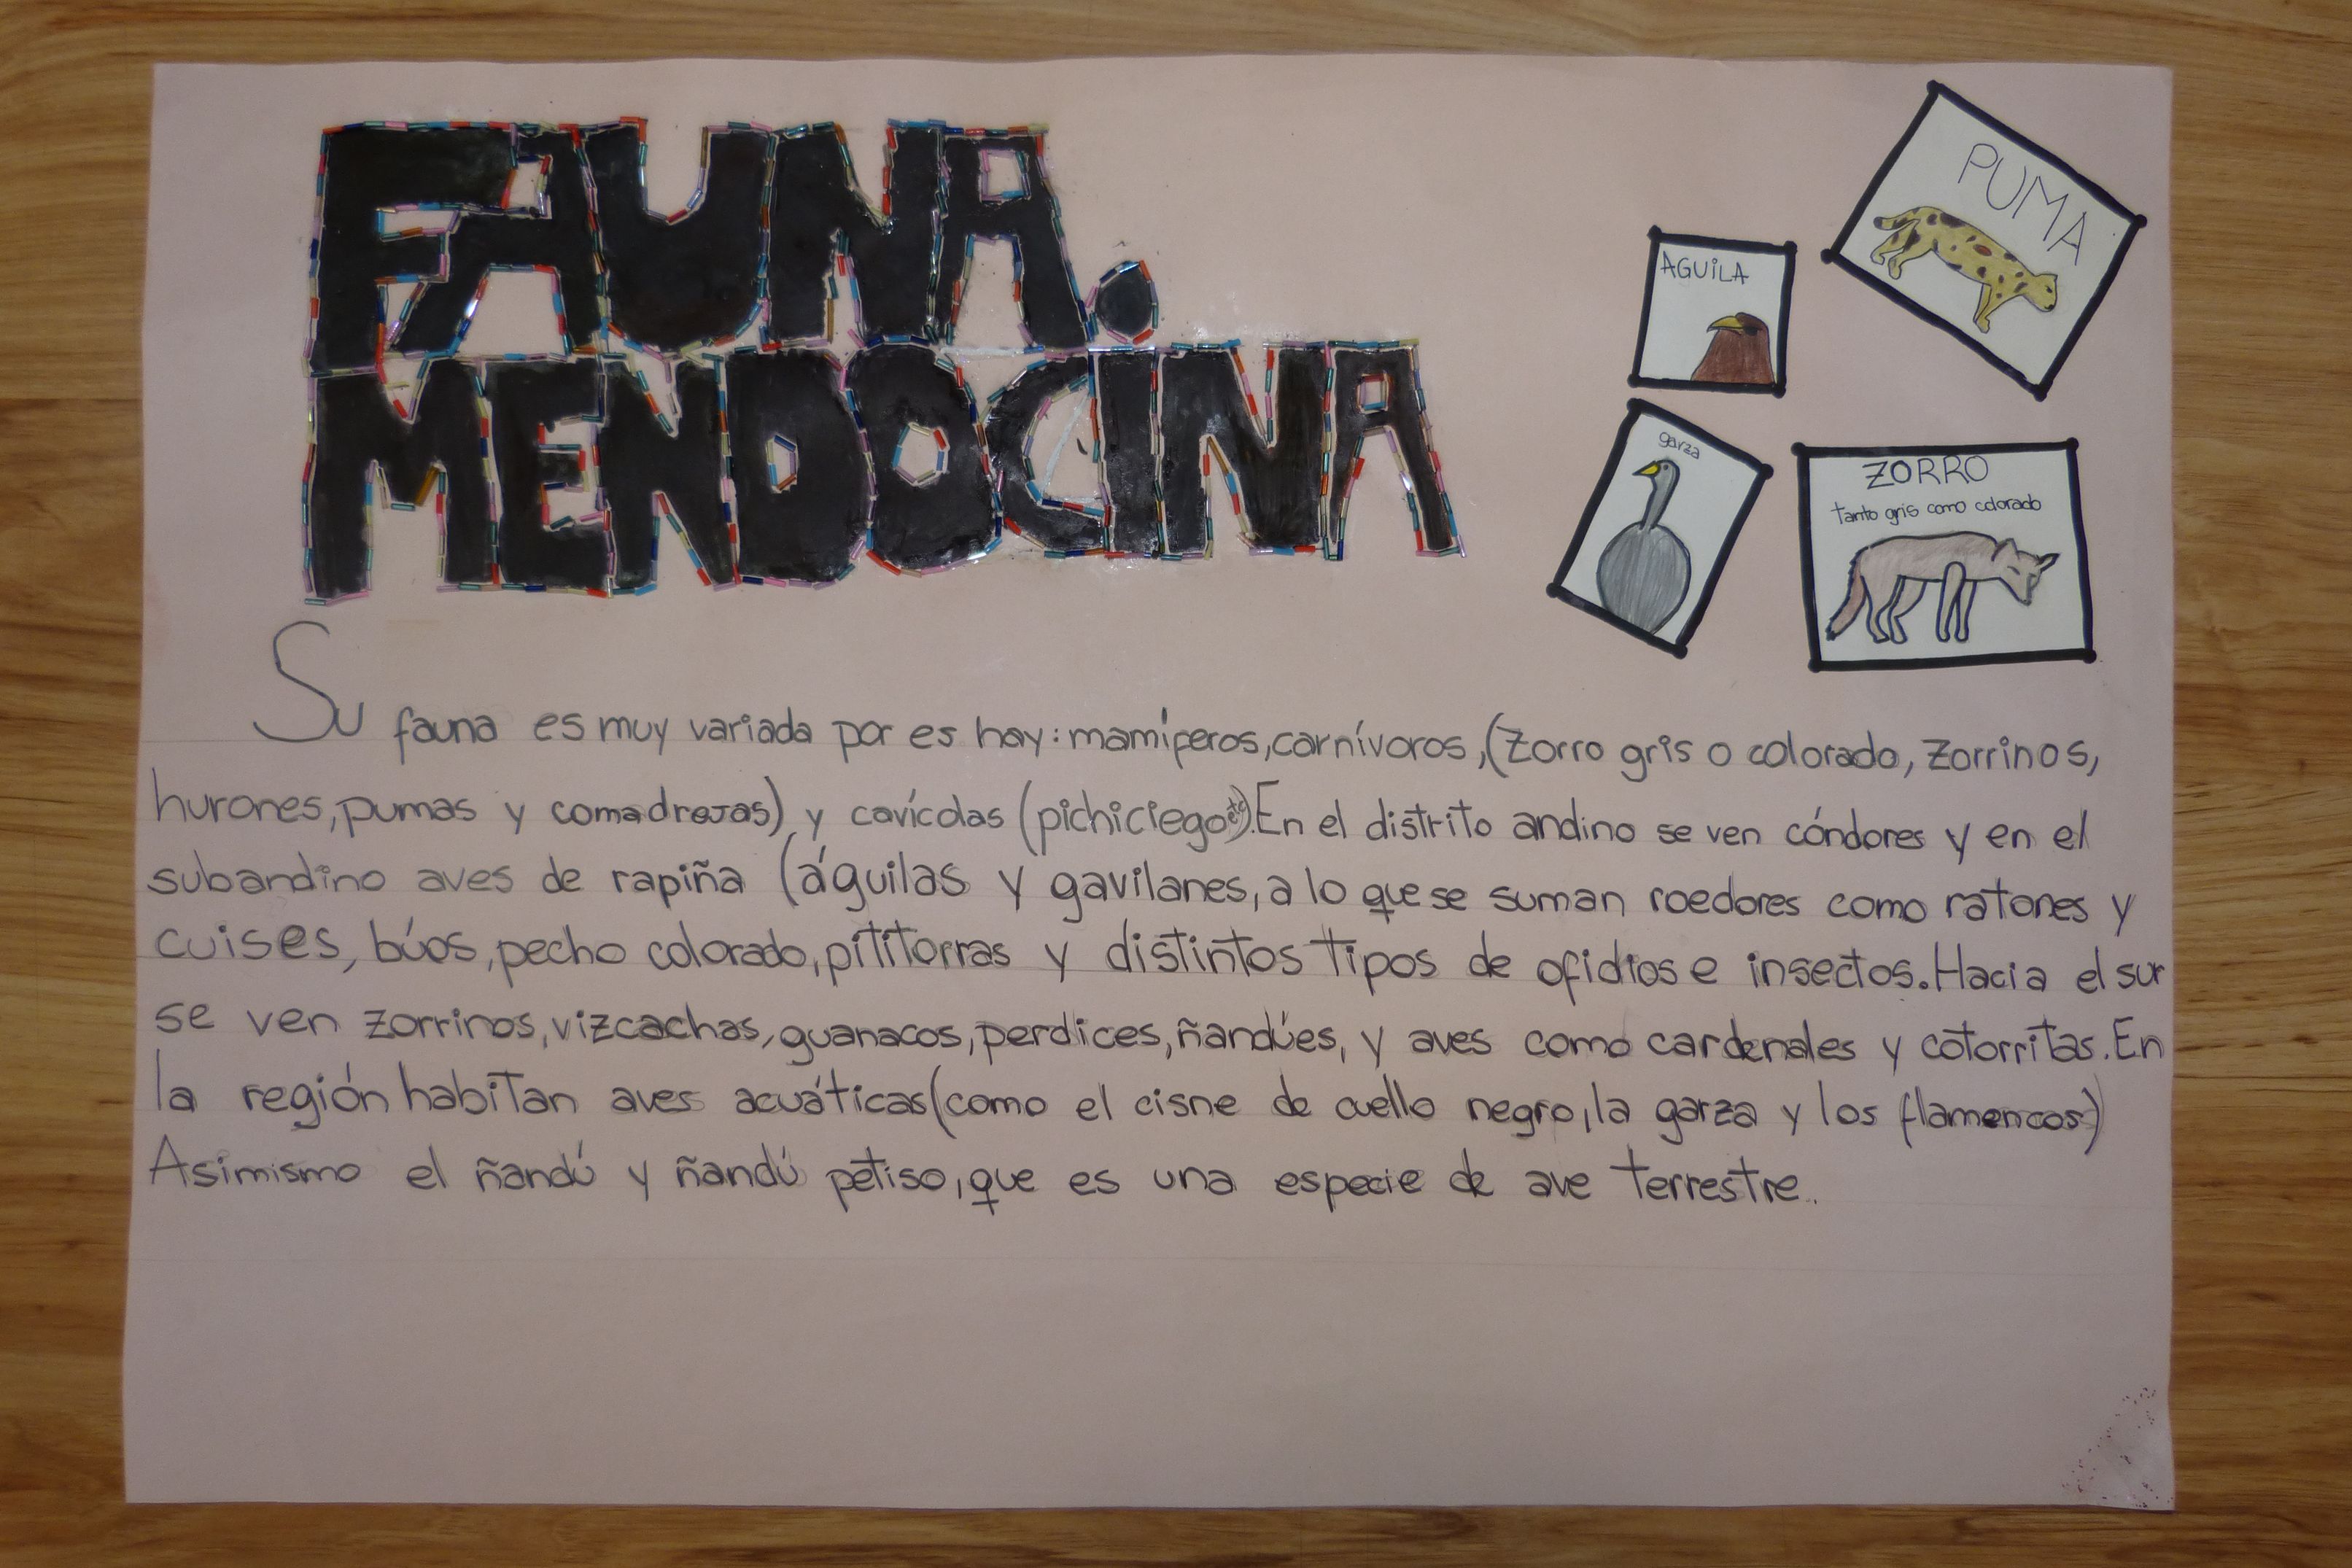 FAUNA.
MENDOCINA
PUMA
AGUiLA
garza
ZORRO
tanto gris como colorado
Su fauna es muy variada por es hay: mamíferos, carnívoros, (Zorro gris o colorado, Zorrinos,
hurones, pumas y comadrejas) y cavícolas (pichiciego etc). En el distrito andino se ven cóndores y en el
subandino aves de rapiña (águilas y gavilanes, a lo que se suman roedores como ratones y
cuises, búos, pecho colorado, pititorras y distintos tipos de ofidios e insectos. Hacia el sur
se ven zorrinos, vizcachas, guanacos, perdices, ñandúes, y aves como cardenales y cotorritas. En
la región habitan aves acuáticas (como el cisne de cuello negro, la garza y los flamencos)
Asimismo el ñandú y ñandú petiso, que es una especie de ave terrestre.